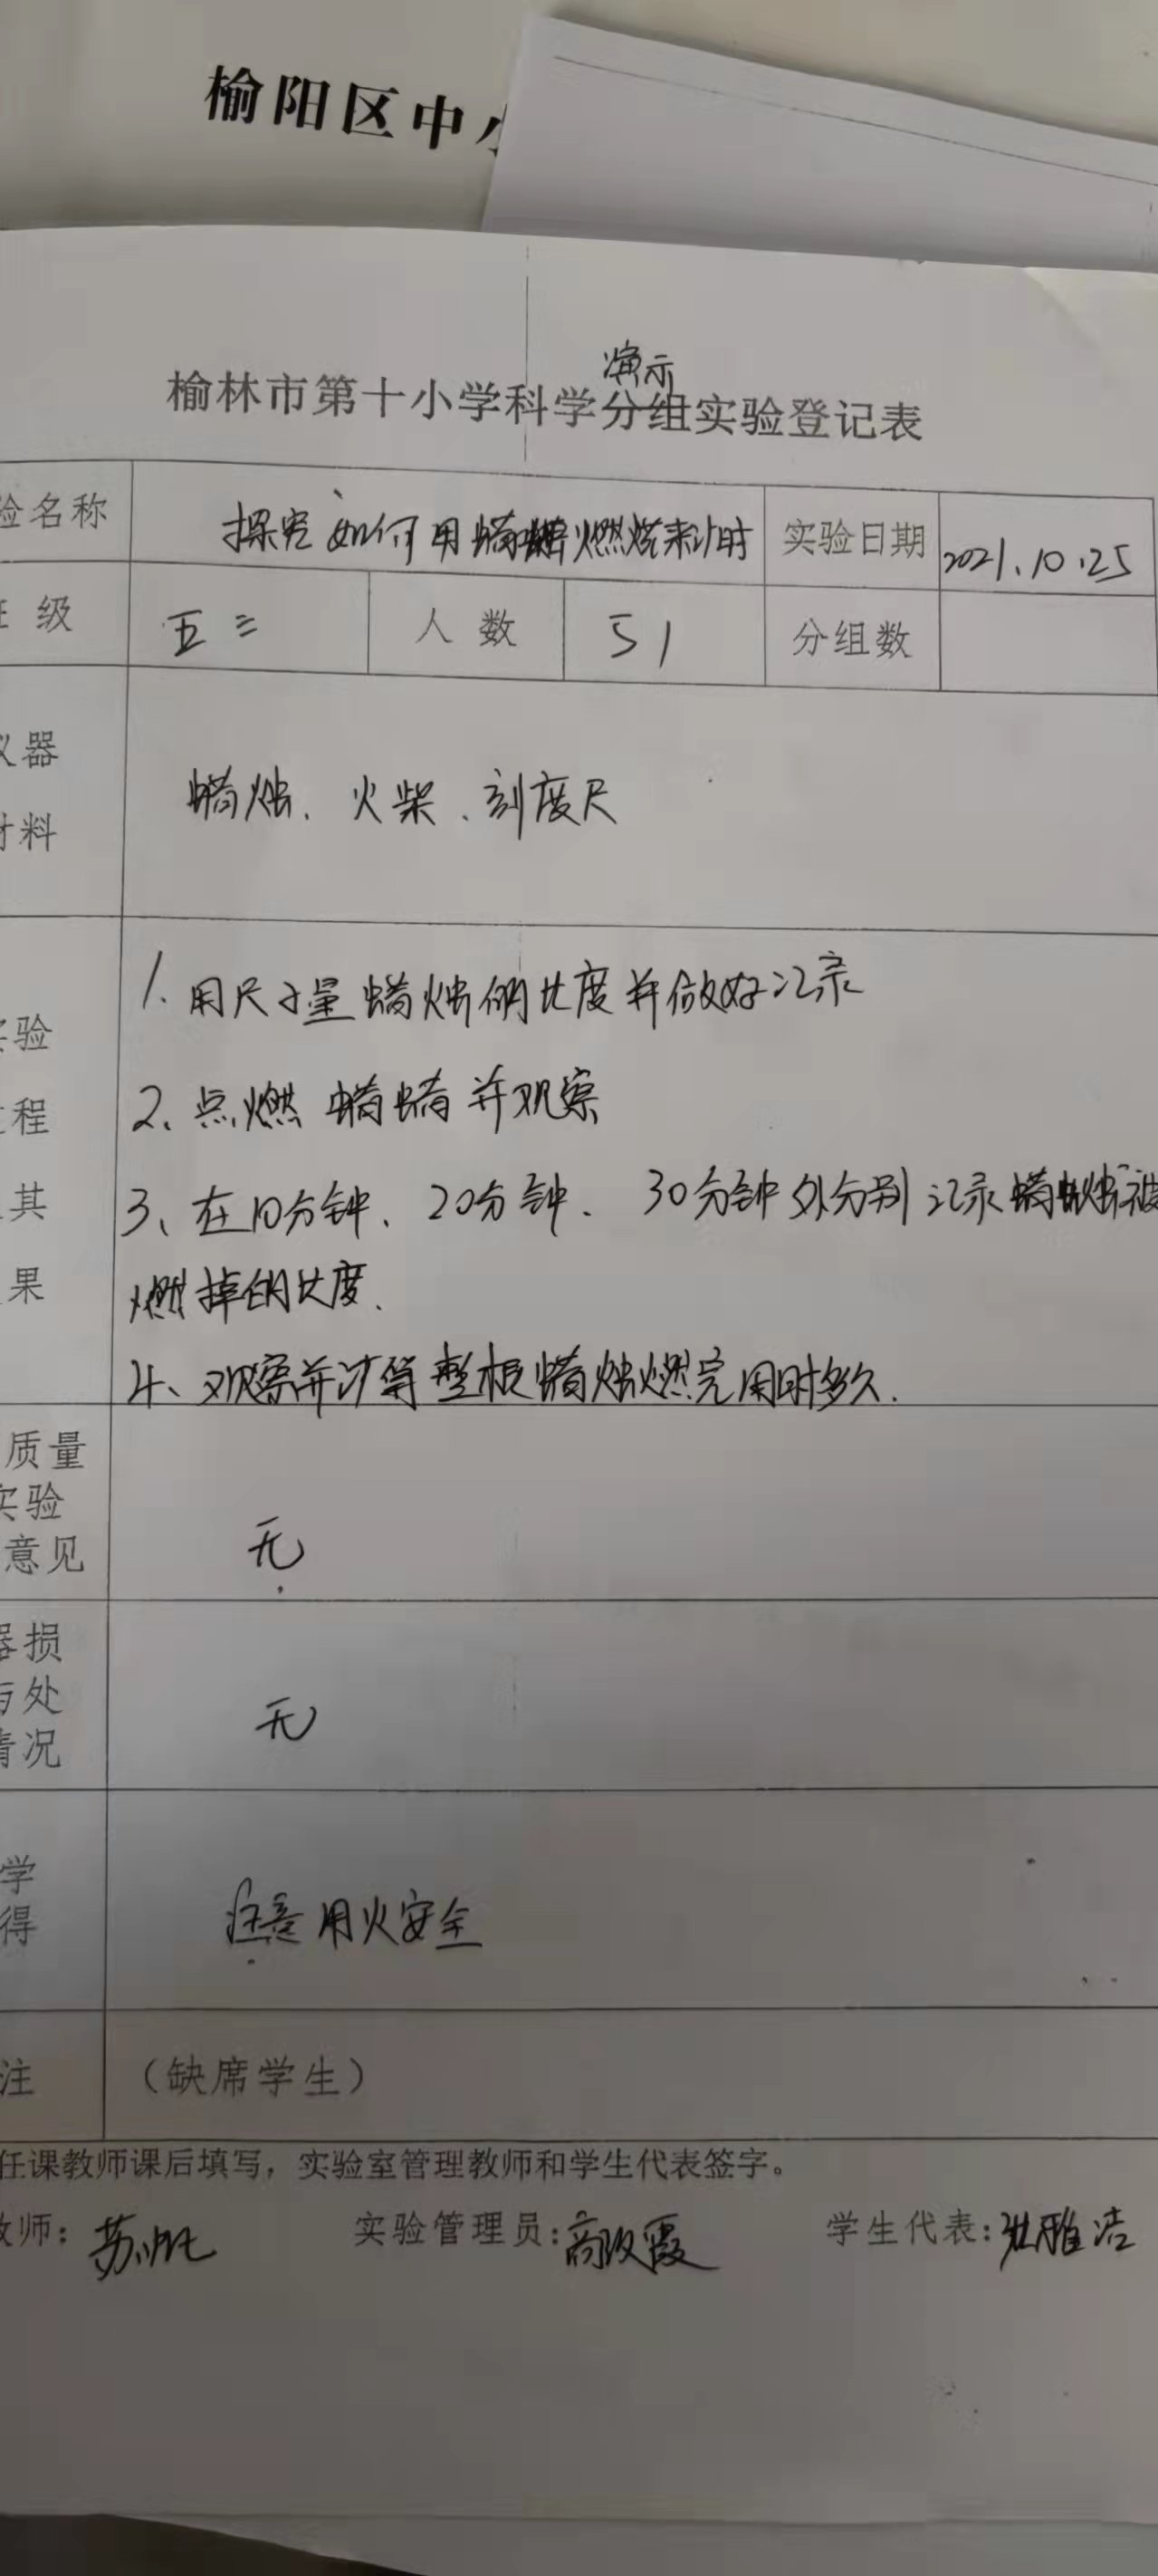 榆阳区中小
演示
榆林市第十小学科学分组实验登记表
验名称 探究如何用蜡烛燃烧来计时 实验日期 2021.10.25
班级 五三 人数 51 分组数
仪器
材料
蜡烛、火柴、刻度尺
实验
过程
其
果
1.用尺子量蜡烛的长度并做好记录
2、点燃蜡蜡并观察
3、在10分钟、20分钟、30分钟外分别记录蜡烛被
燃掉的长度.
4、观察并计算整根蜡烛燃完用时多久.
质量
实验
意见
无
器损
与处
情况
无
学
得
注意用火安全
注 (缺席学生)
任课教师课后填写，实验室管理教师和学生代表签字。
教师: 苏帆 实验管理员: 高改霞 学生代表: 雅洁